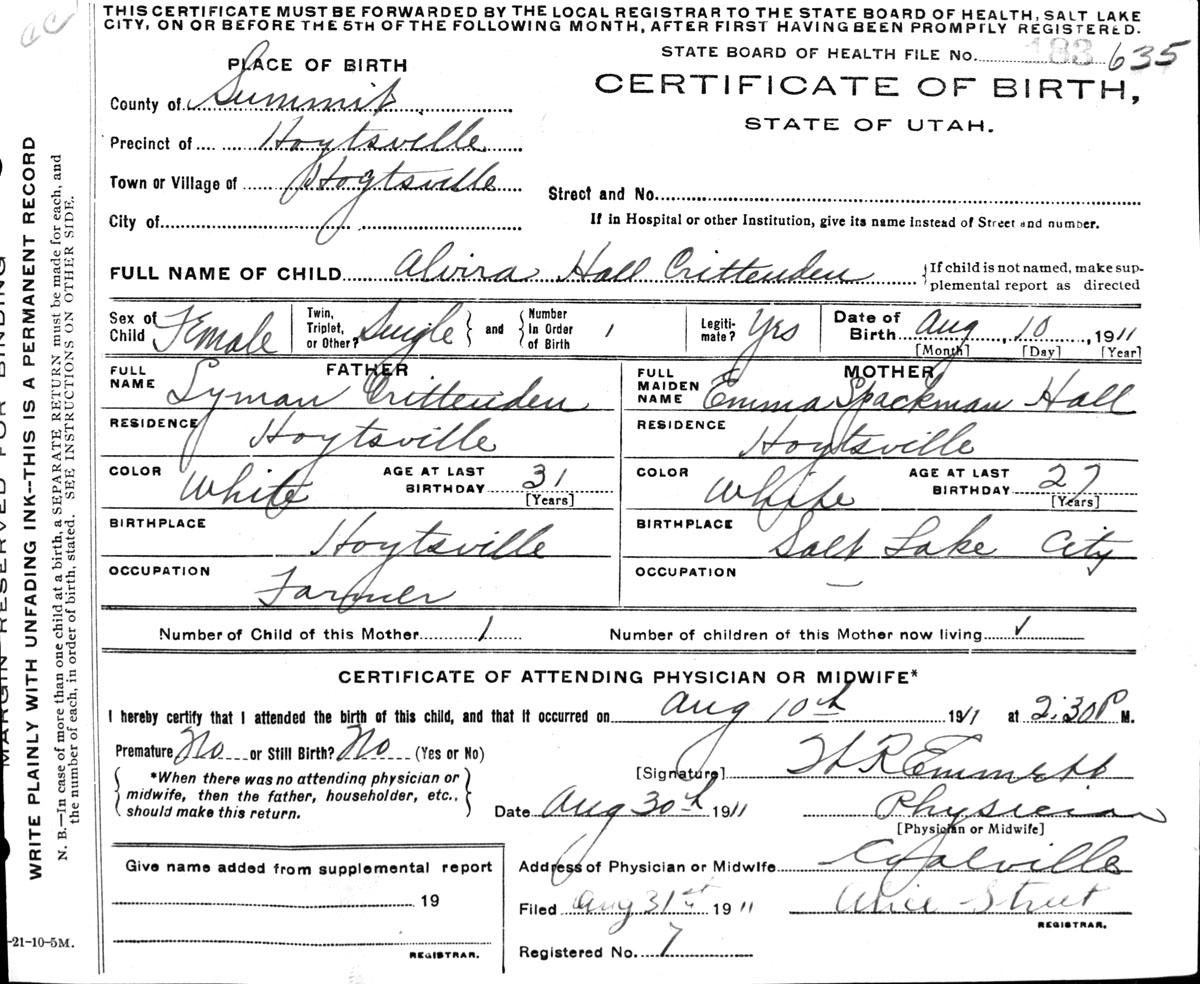 THIS CERTIFICATE MUST BE FORWARDED BY THE LOCAL REGISTRAR TO THE STATE BOARD OF HEALTH, SALT LAKE
CITY, ON OR BEFORE THE 5TH OF THE FOLLOWING MONTH, AFTER FIRST HAVING BEEN PROMPTLY REGISTERED.
STATE BOARD OF HEALTH FILE No. 183 635
PLACE OF BIRTH
CERTIFICATE OF BIRTH,
STATE OF UTAH.
County of Summit
Precinct of Hoytsville
Town or Village of Hoytsville
Street and No.
City of
If in Hospital or other Institution, give its name instead of Street and number.
FULL NAME OF CHILD Alvira Hall Crittenden
If child is not named, make sup-
plemental report as directed
Sex of Child Female
Twin, Triplet, or Other? Single
and
Number In Order of Birth 1
Legiti-mate? Yes
Date of Birth Aug 10, 1911
[Month] [Day] [Year]
FATHER
FULL NAME Lyman Crittenden
RESIDENCE Hoytsville
COLOR White
AGE AT LAST BIRTHDAY 31
[Years]
BIRTHPLACE Hoytsville
OCCUPATION Farmer
MOTHER
FULL MAIDEN NAME Emma Spackman Hall
RESIDENCE Hoytsville
COLOR White
AGE AT LAST BIRTHDAY 27
[Years]
BIRTHPLACE Salt Lake City
OCCUPATION —
Number of Child of this Mother 1
Number of children of this Mother now living 1
CERTIFICATE OF ATTENDING PHYSICIAN OR MIDWIFE*
I hereby certify that I attended the birth of this child, and that it occurred on Aug 10th 1911 at 2:30 P M.
Premature No or Still Birth? No (Yes or No)
*When there was no attending physician or
midwife, then the father, householder, etc.,
should make this return.
[Signature] Emmett
Date Aug 30th 1911
Physician
[Physician or Midwife]
Give name added from supplemental report
19
REGISTRAR.
Address of Physician or Midwife Coalville
Filed Aug 31st 1911
Alice Street
REGISTRAR.
Registered No. 7
MARGIN RESERVED FOR BINDING
WRITE PLAINLY WITH UNFADING INK--THIS IS A PERMANENT RECORD
N. B.—In case of more than one child at a birth, a SEPARATE RETURN must be made for each, and
the number of each, in order of birth, stated. SEE INSTRUCTIONS ON OTHER SIDE.
-21-10-5M.